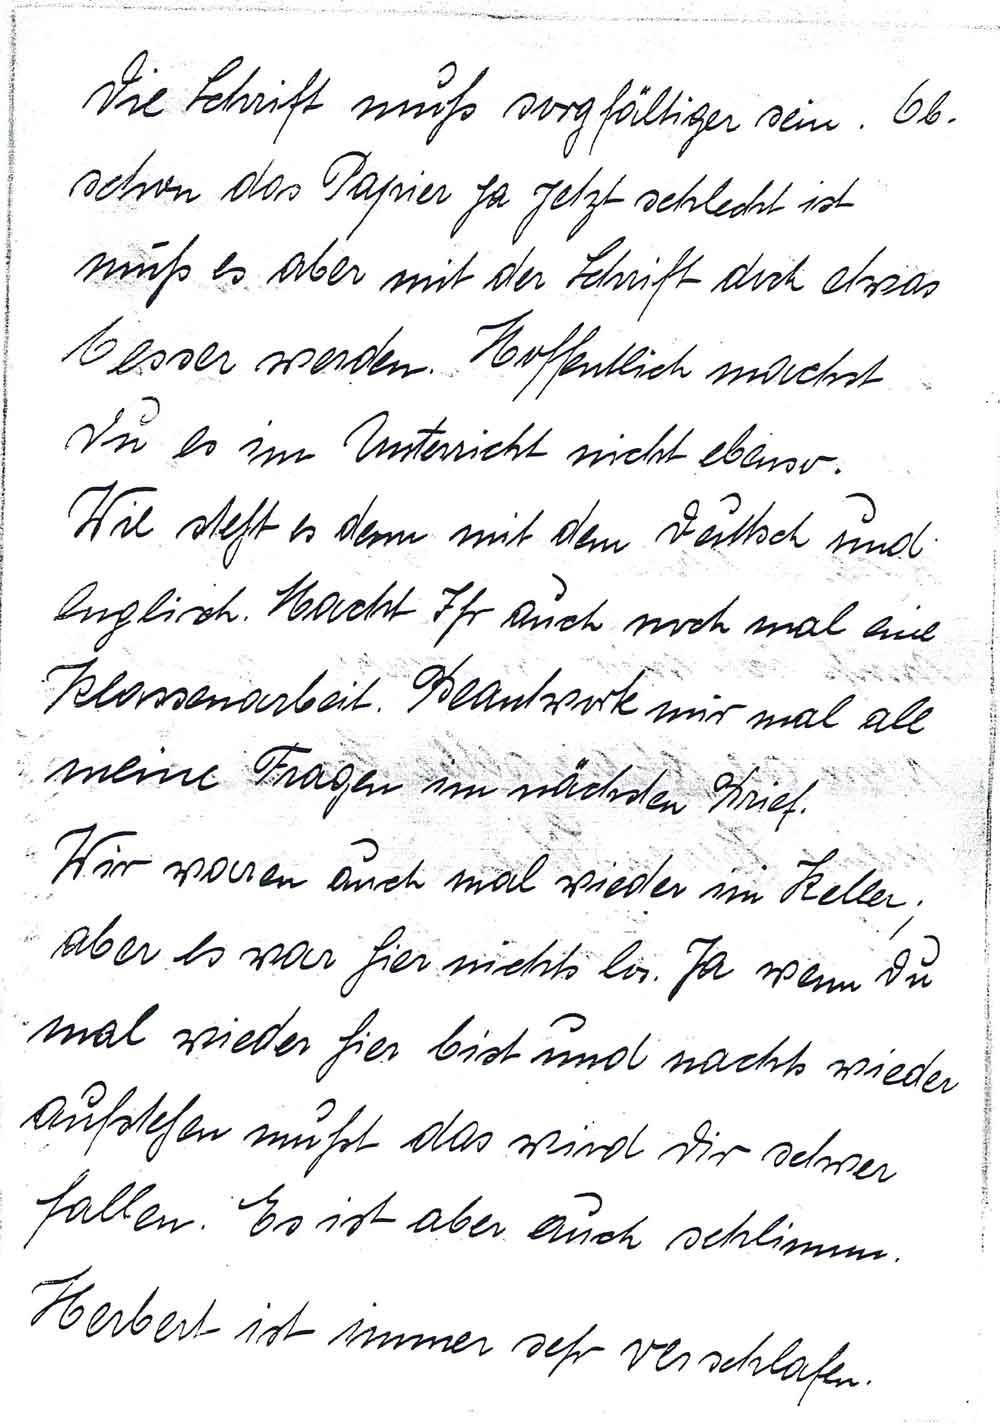 Die Schrift muß sorgfältiger sein. Ob.
schon das Papier ja jetzt schlecht ist
muß es aber mit der Schrift doch etwas
besser werden. Hoffentlich machst
Du es im Unterricht nicht ebenso.
Wie steht es denn mit dem Deutsch und
Englisch. Macht Ihr auch noch mal eine
Klassenarbeit. Beantworte mir mal all
meine Fragen im nächsten Brief.
Wir waren auch mal wieder im Keller,
aber es war hier nichts los. Ja wenn Du
mal wieder hier bist und nachts wieder
aufstehen mußt das wird Dir schwer
fallen. Es ist aber auch schlimm.
Herbert ist immer sehr verschlafen.